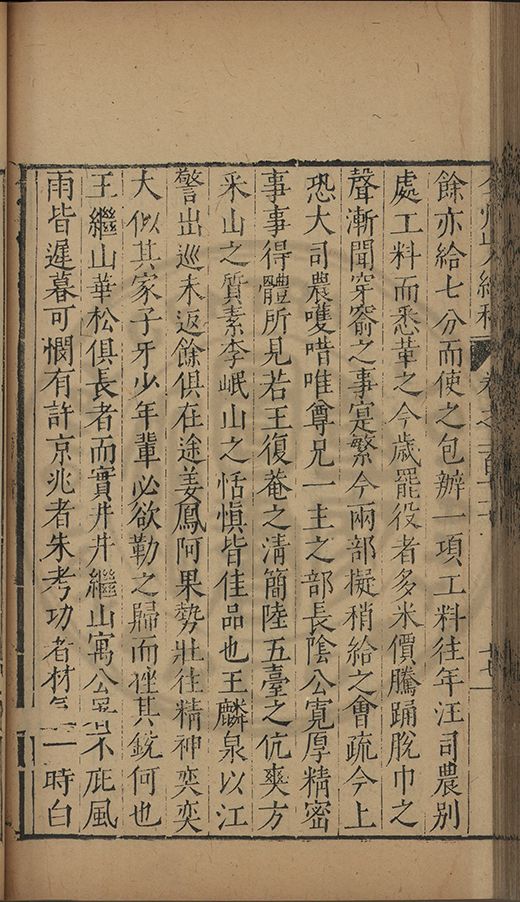 餘亦給七分而使之包辦一項工料往年汪司農別
處工料而悉革之今歲罷役者多米價騰踊脫巾之
聲漸聞穿窬之事寔繁今兩部擬稍給之會疏今上
恐大司農嚄唶唯尊兄一主之部長陰公寬厚精密
事事得體所見若王復菴之清簡陸五臺之伉爽方
采山之質素李岷山之恬慎皆佳品也王麟泉以江
警出巡未返餘俱在途姜鳳阿果勢壯往精神奕奕
大似其家子牙少年輩必欲勒之歸而挫其銳何也
王繼山華松俱長者而實井井繼山寓公署不庇風
雨皆遲暮可憫有許京兆者朱考功者材 一時白